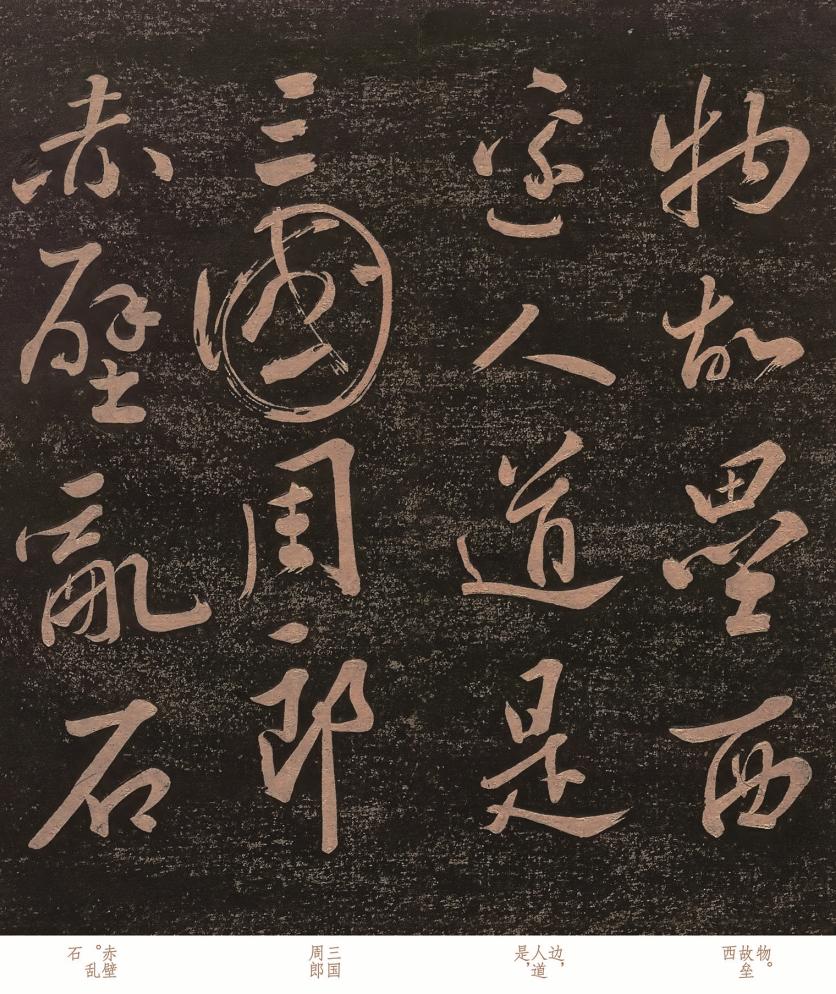 物故壘西
邊人道是
三國周郎
赤壁亂石
物。
故垒
西
边，
人道
是，
三国
周郎
赤壁
。乱
石